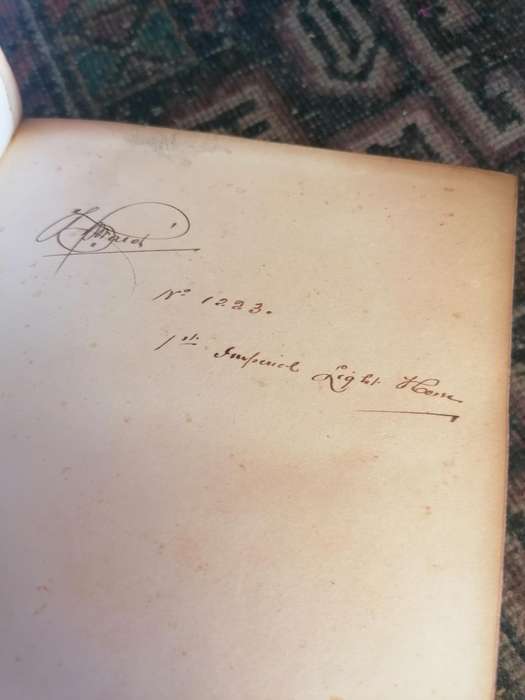 No 1223.
1st Imperial Light Horse